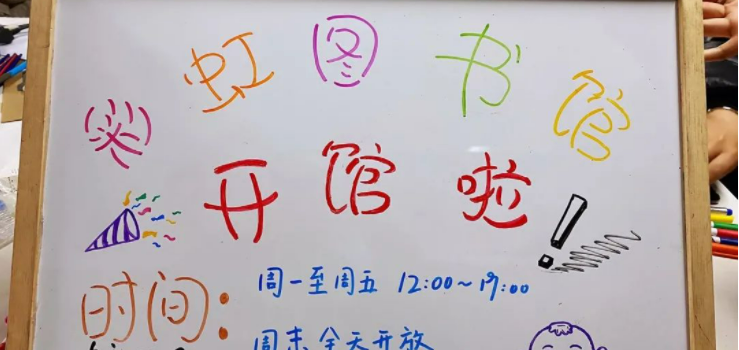 彩虹图书馆
开馆啦!
时间:
周一至周五 12:00~19:00
周末全天开放